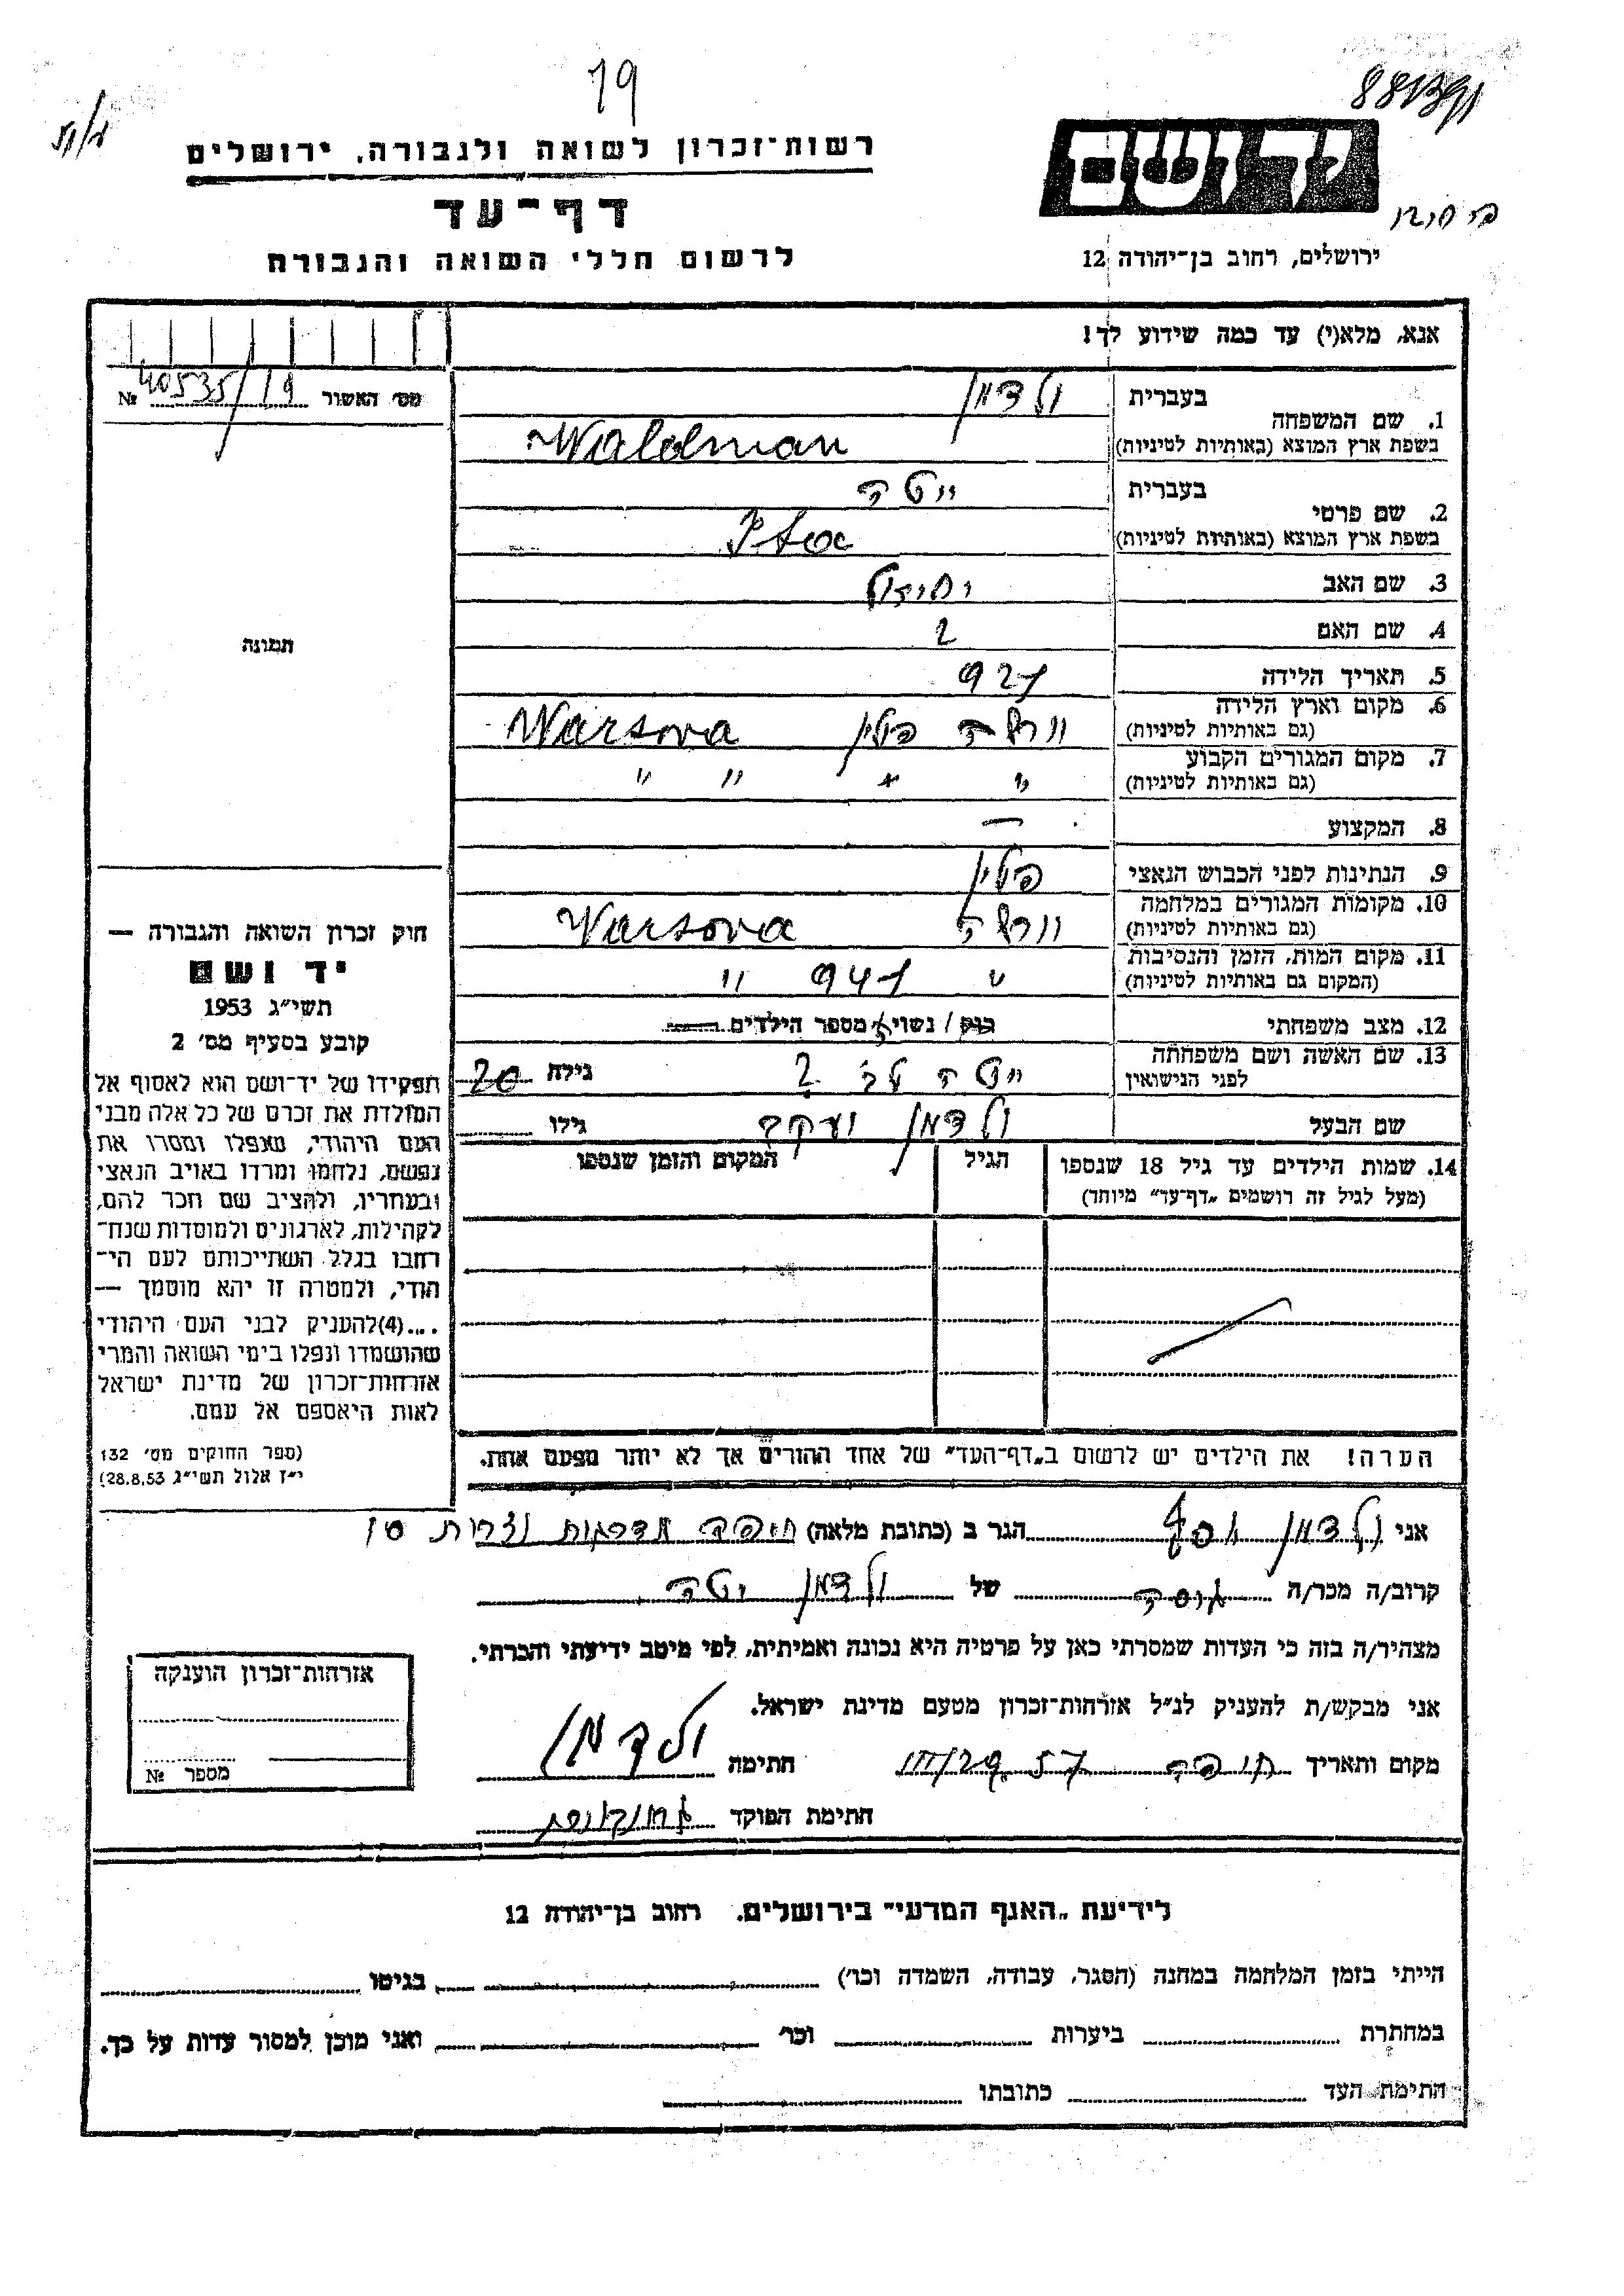 19
רשות־זכרון לשואה ולגבורה, ירושלים
דף־עד
לרשום חללי השואה והגבורה
יד ושם
ירושלים, רחוב בן־יהודה 12
אנא, מלא(י) עד כמה שידוע לך!
מס׳ האשור 40535/19 №
תמונה
1. שם המשפחה
בעברית ולדמן
בשפת ארץ המוצא (באותיות לטיניות) Waldman
2. שם פרטי
בעברית ייטה
בשפת ארץ המוצא (באותיות לטיניות) Ita
3. שם האב יחיאל
4. שם האם ?
5. תאריך הלידה 921
6. מקום וארץ הלידה ורשה פולין Warsova
(גם באותיות לטיניות)
7. מקום המגורים הקבוע " " " "
(גם באותיות לטיניות)
8. המקצוע —
9. הנתינות לפני הכבוש הנאצי פולין
10. מקומות המגורים במלחמה ורשה Warsova
(גם באותיות לטיניות)
11. מקום המות, הזמן והנסיבות " 941 "
(המקום גם באותיות לטיניות)
12. מצב משפחתי רוק / נשוי מספר הילדים
13. שם האשה ושם משפחתה ייטה ? גילה 20
לפני הנישואין
שם הבעל ולדמן יעקב גילו
14. שמות הילדים עד גיל 18 שנספו הגיל המקום והזמן שנספו
(מעל לגיל זה רושמים „דף־עד" מיוחד)
הערה! את הילדים יש לרשום ב„דף־העד" של אחד ההורים אך לא יותר מפעם אחת.
חוק זכרון השואה והגבורה —
יד ושם
תשי״ג 1953
קובע בסעיף מס׳ 2
תפקידו של יד־ושם הוא לאסוף אל
המולדת את זכרם של כל אלה מבני
העם היהודי, שנפלו ומסרו את
נפשם, נלחמו ומרדו באויב הנאצי
ובעוזריו, ולהציב שם וזכר להם,
לקהילות, לארגונים ולמוסדות שנח־
רבו בגלל השתייכותם לעם הי־
הודי, ולמטרה זו יהא מוסמך —
....(4) להעניק לבני העם היהודי
שהושמדו ונפלו בימי השואה והמרי
אזרחות־זכרון של מדינת ישראל
לאות היאספם אל עמם.
(ספר החוקים מס׳ 132
י״ז אלול תשי״ג 28.8.53)
אני ולדמן יוסף הגר ב (כתובת מלאה) חיפה
קרוב/ה מכר/ה גיסה של ולדמן יטה
מצהיר/ה בזה כי העדות שמסרתי כאן על פרטיה היא נכונה ואמיתית, לפי מיטב ידיעתי והכרתי.
אני מבקש/ת להעניק לנ״ל אזרחות־זכרון מטעם מדינת ישראל.
מקום ותאריך חיפה חתימה ולדמן
חתימת הפוקד
אזרחות־זכרון הוענקה
מספר №
לידיעת „האגף המדעי" בירושלים, רחוב בן־יהודה 12
הייתי בזמן המלחמה במחנה (הסגר, עבודה, השמדה וכו׳) בגיטו
במחתרת ביערות וכו׳ ואני מוכן למסור עדות על כך.
חתימת העד כתובתו